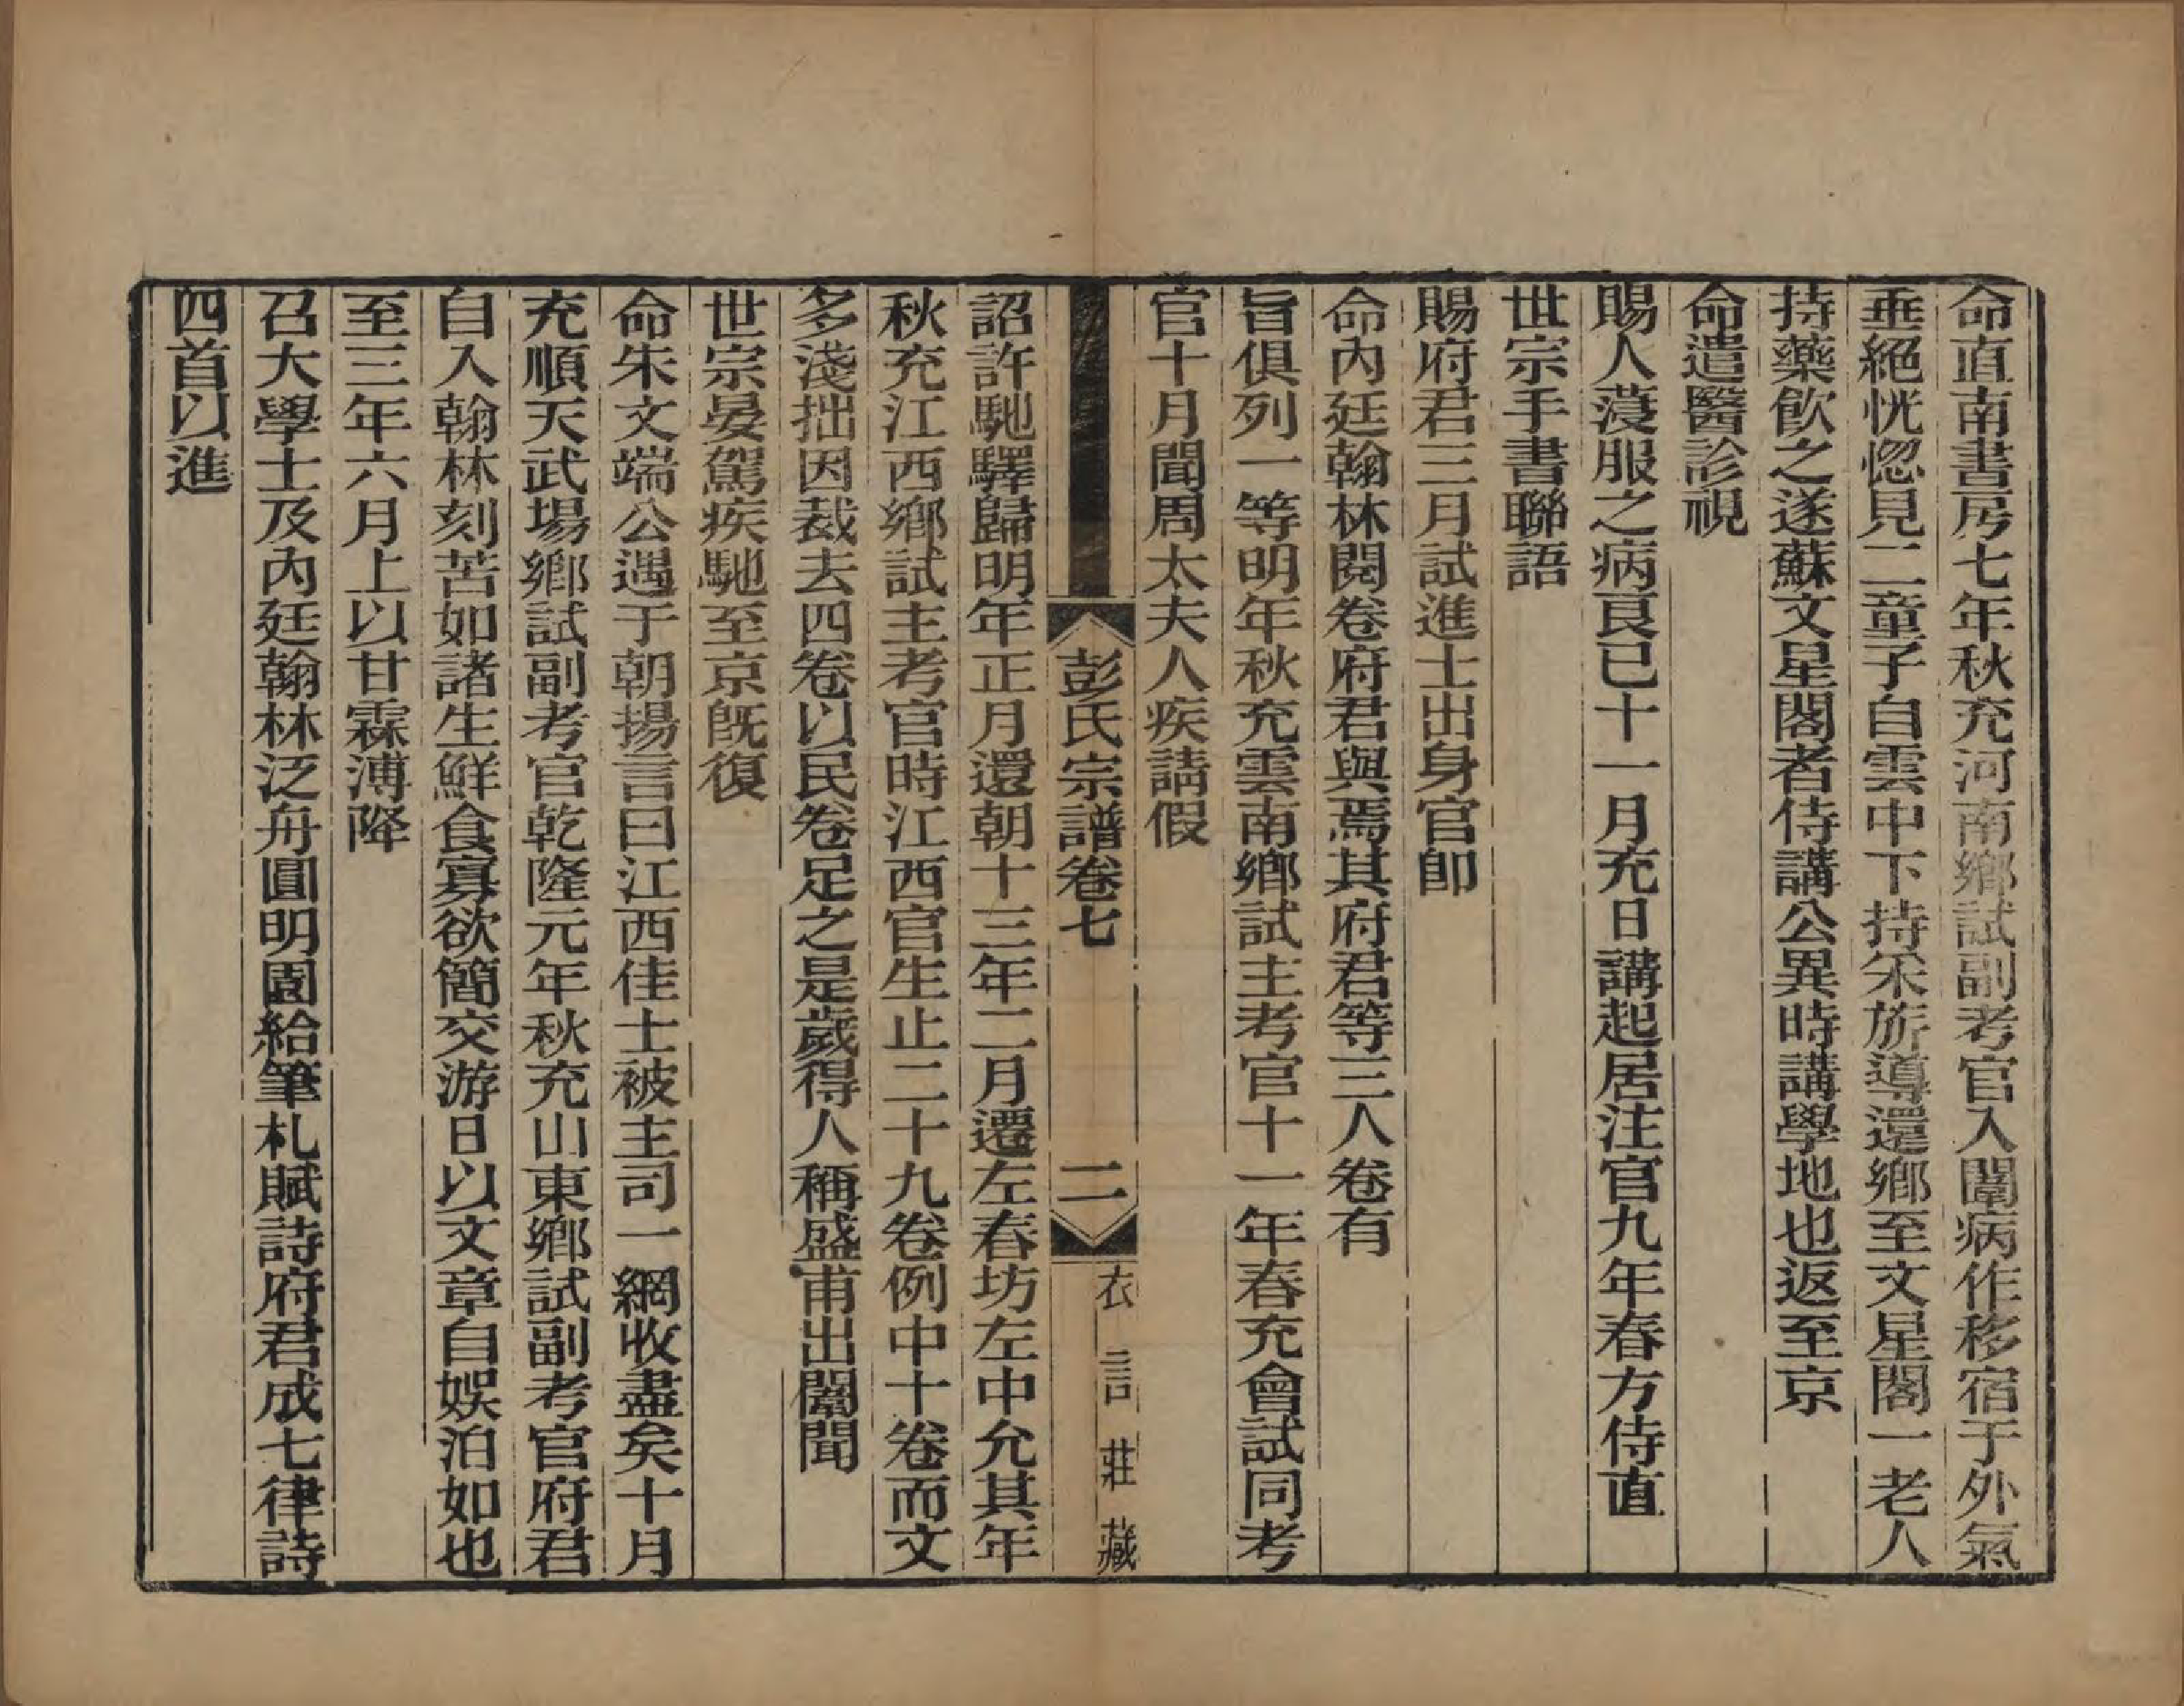 命直南書房七年秋充河南鄉試副考官入闈病作移宿于外氣
垂絕恍惚見二童子自雲中下持采旂導還鄉至文星閣一老人
持藥飲之遂蘇文星閣者侍講公異時講學地也返至京
命遣醫診視
賜人葠服之病良已十一月充日講起居注官九年春方侍直
世宗手書聯語
賜府君三月試進士出身官卽
命內廷翰林閱卷府君與焉其府君等三人卷有
旨俱列一等明年秋充雲南鄉試主考官十一年春充會試同考
官十月聞周太夫人疾請假
彭氏宗譜卷七
二
衣言莊藏
詔許馳驛歸明年正月還朝十三年二月遷左春坊左中允其年
秋充江西鄉試主考官時江西官生止二十九卷例中十卷而文
多淺拙因裁去四卷以民卷足之是歲得人稱盛甫出闈聞
世宗晏駕疾馳至京旣復
命朱文端公遇于朝揚言曰江西佳士被主司一網收盡矣十月
充順天武場鄉試副考官乾隆元年秋充山東鄉試副考官府君
自入翰林刻苦如諸生鮮食寡欲簡交游日以文章自娛泊如也
至三年六月上以甘霖溥降
召大學士及內廷翰林泛舟圓明園給筆札賦詩府君成七律詩
四首以進